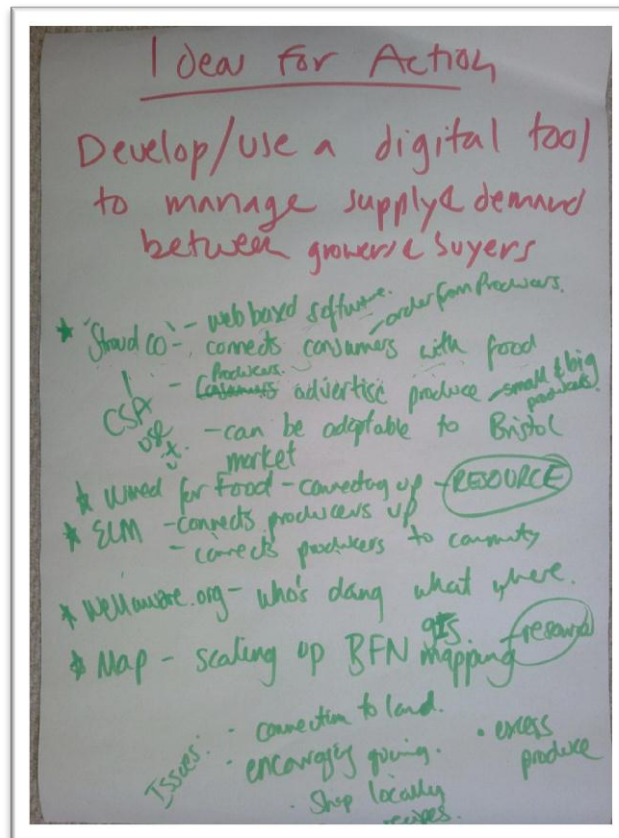 Idea for Action
Develop/use a digital tool
to manage supply & demand
between growers & buyers
* 'Stroud co' - web based software.
- connects consumers with food - order from Producers.
- Producers advertise produce - small & big producers
CSA use it.
- can be adaptable to Bristol
market
* Wired for Food - connecting up - RESOURCE
* ELM - connects producers up
- connects producers to community
* Wellaware.org - who's doing what where.
* Map - scaling up BFN GIS mapping - resource
Issues:
· connection to land.
· encouraging
· excess produce
· Shop locally
recipes.